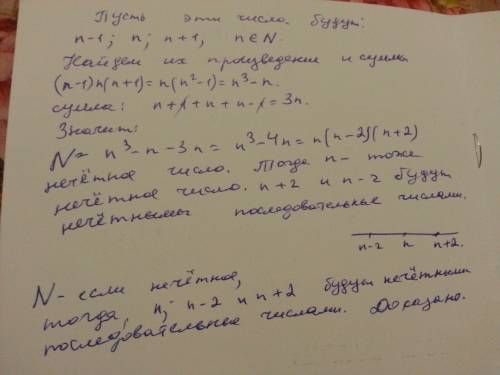 Пусть эти числа будут:
n-1; n; n+1, n∈N.
Найдем их произведение и сумму
(n-1)n(n+1)=n(n²-1)=n³-n.
сумма: n+1+n+n-1=3n.
Значит:
N= n³-n-3n= n³-4n= n(n-2)(n+2)
нечётное число. Тогда n- тоже
нечётное число. n+2 и n-2 будут
нечётными последовательные числами.
n-2 n n+2.
N- если нечётное,
тогда, n; n-2 и n+2 будут нечётными
последовательные числами. Доказано.